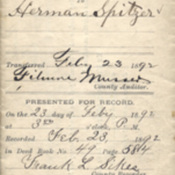 TO
Herman Spitzer
Transferred Feby 23 1892
Filmore Musser
County Auditor.
PRESENTED FOR RECORD
On the 23 day of Feby 1892
at 3 o'clock P. M.
Recorded Feb. 23, 1892
in Deed Book No 49, Page 584
Frank L.
County Recorder